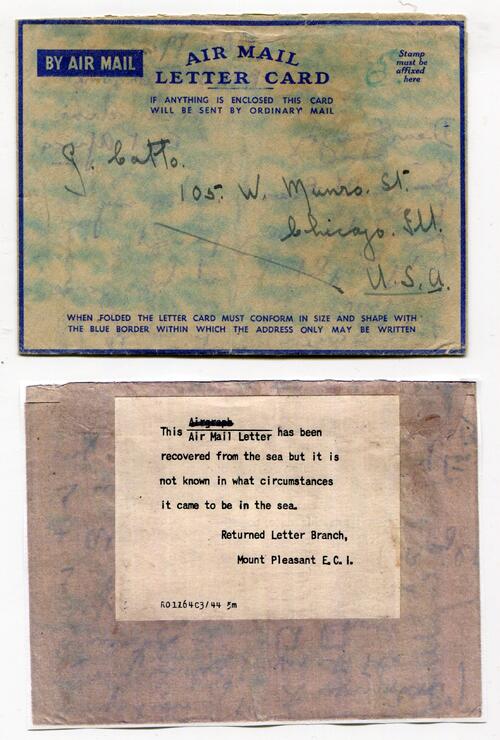 BY AIR MAIL
AIR MAIL
LETTER CARD
Stamp
must be
affixed
here
IF ANYTHING IS ENCLOSED THIS CARD
WILL BE SENT BY ORDINARY MAIL
G. Catto.
105. W. Munro. St.
Chicago. Ill.
U.S.A.
WHEN FOLDED THE LETTER CARD MUST CONFORM IN SIZE AND SHAPE WITH
THE BLUE BORDER WITHIN WHICH THE ADDRESS ONLY MAY BE WRITTEN
Airgraph
This Air Mail Letter has been
recovered from the sea but it is
not known in what circumstances
it came to be in the sea.
Returned Letter Branch,
Mount Pleasant E.C.1.
RO1264C3/44 5m